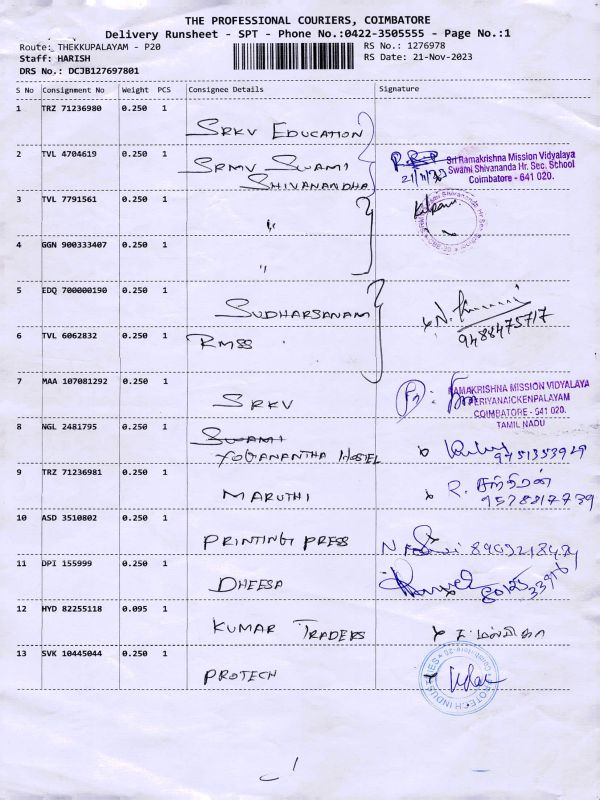 THE PROFESSIONAL COURIERS, COIMBATORE
Delivery Runsheet - SPT - Phone No.:0422-3505555 - Page No.:1
Route: THEKKUPALAYAM - P20
RS No.: 1276978
Staff: HARISH
RS Date: 21-Nov-2023
DRS No.: DCJB127697801
S No Consignment No Weight PCS Consignee Details Signature
1 TRZ 71236980 0.250 1
SRKV EDUCATION
2 TVL 4704619 0.250 1
SRMV SWAMI
SHIVANANDHA
Sri Ramakrishna Mission Vidyalaya
Swami Shivananda Hr. Sec. School
Coimbatore - 641 020.
3 TVL 7791561 0.250 1
"
4 GGN 900333407 0.250 1
"
5 EDQ 700000190 0.250 1
SUDHARSANAM
9488475717
6 TVL 6062832 0.250 1
RMSS
7 MAA 107081292 0.250 1
SRKV
RAMAKRISHNA MISSION VIDYALAYA
PERIYANAICKENPALAYAM
COIMBATORE - 641 020.
TAMIL NADU
8 NGL 2481795 0.250 1
SWAMI
YOGANANTHA HOSTEL
9451353929
9 TRZ 71236981 0.250 1
MARUTHI
R. சந்திரன்
9528817739
10 ASD 3510802 0.250 1
PRINTING PRESS
11 DPI 155999 0.250 1
DHEESA
12 HYD 82255118 0.095 1
KUMAR TRADERS
13 SVK 10445044 0.250 1
PROTECH